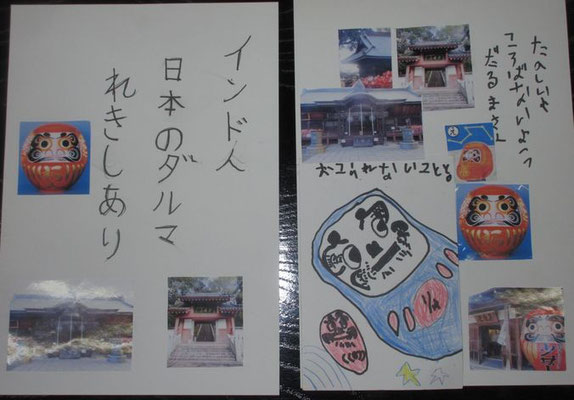 インド人
日本のダルマ
れきしあり
たのしいよ
ころばないよっ
だるまさん
おこられないことも